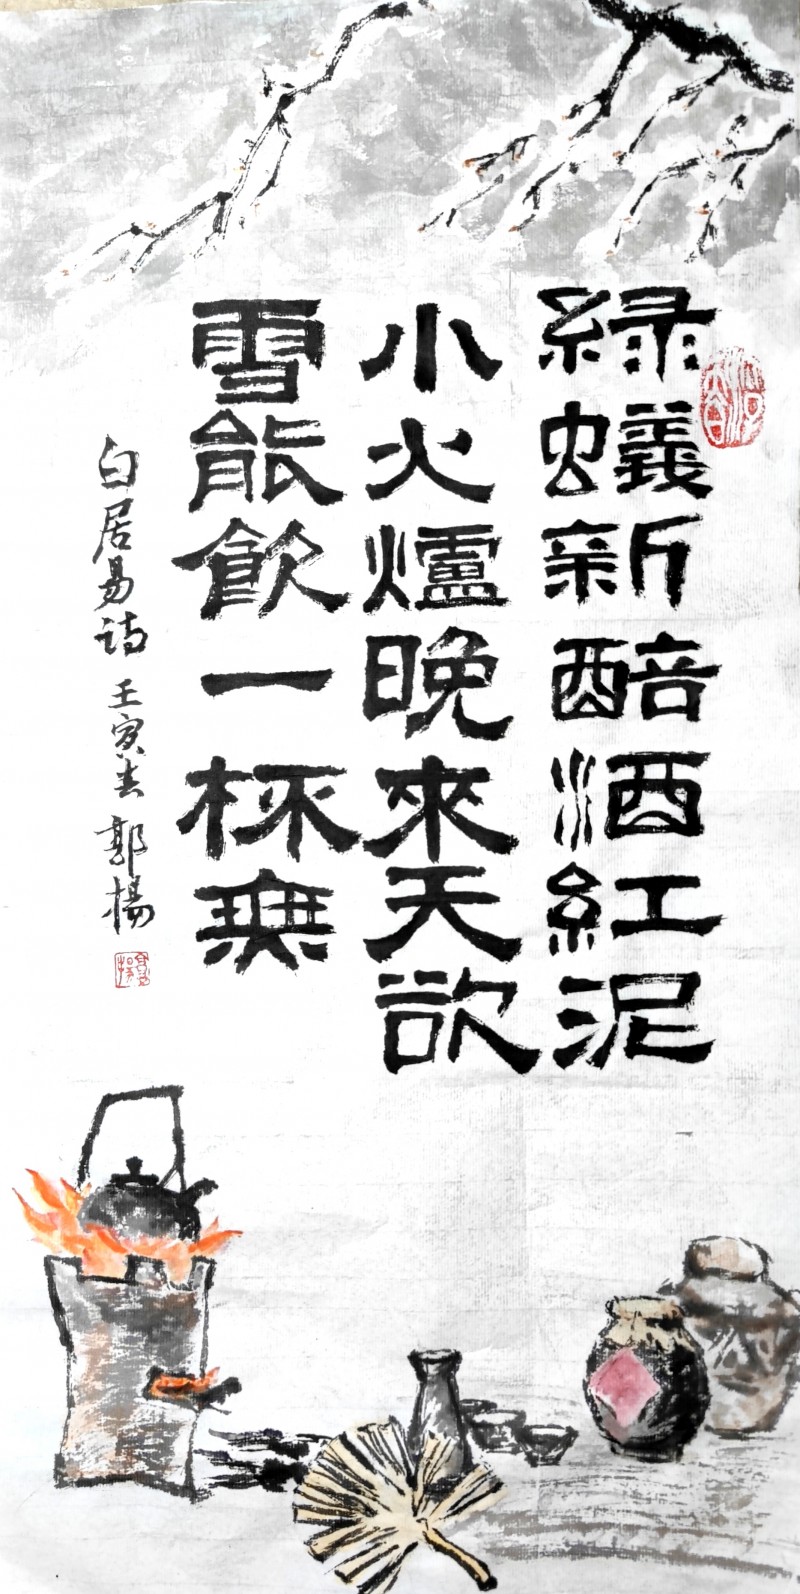 緑蟻新醅酒紅泥
小火爐晚來天欲
雪能飲一杯無
白居易诗 壬寅春 郭楊